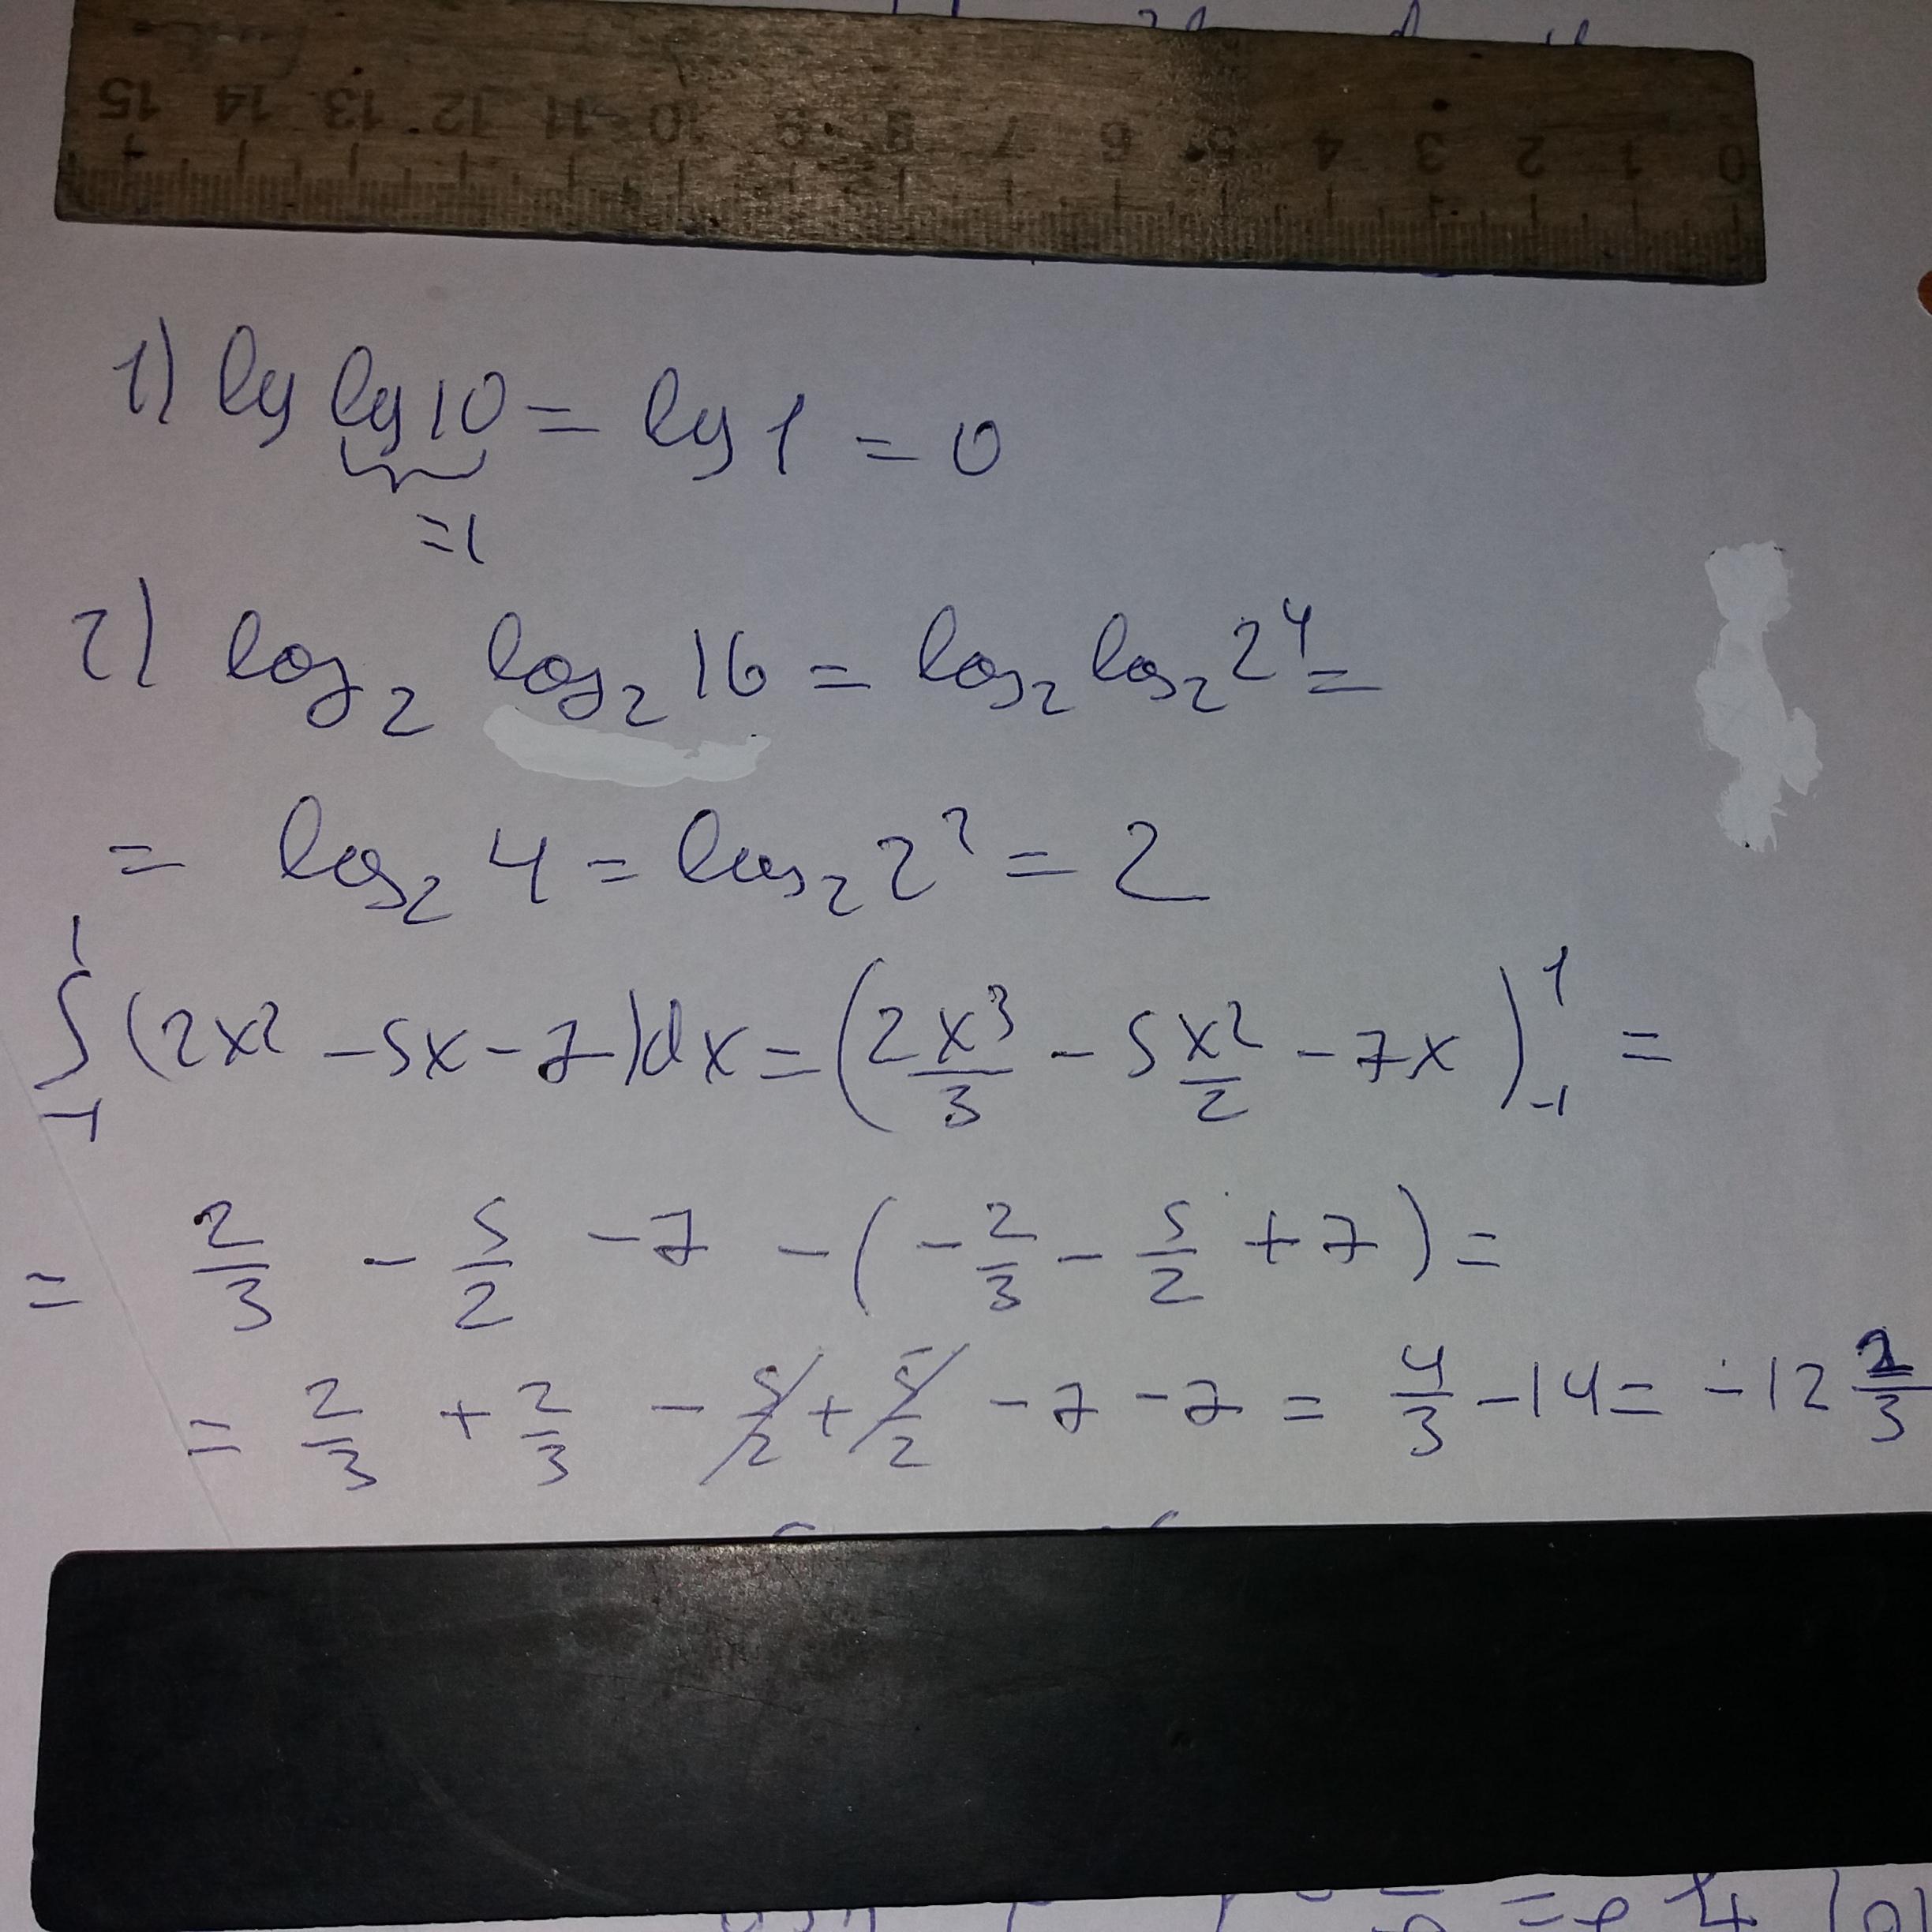 15 14 13 12 11 10 9 8 7 6 5 4 3 2 1 0
1) lg lg 10 = lg 1 = 0
=1
2) log₂ log₂ 16 = log₂ log₂ 2⁴ =
= log₂ 4 = log₂ 2² = 2
∫₋₁¹ (2x² - 5x - 7)dx = (2x³/3 - 5x²/2 - 7x)₋₁¹ =
= 2/3 - 5/2 - 7 - (-2/3 - 5/2 + 7) =
= 2/3 + 2/3 - 5/2 + 5/2 - 7 - 7 = 4/3 - 14 = -12 2/3